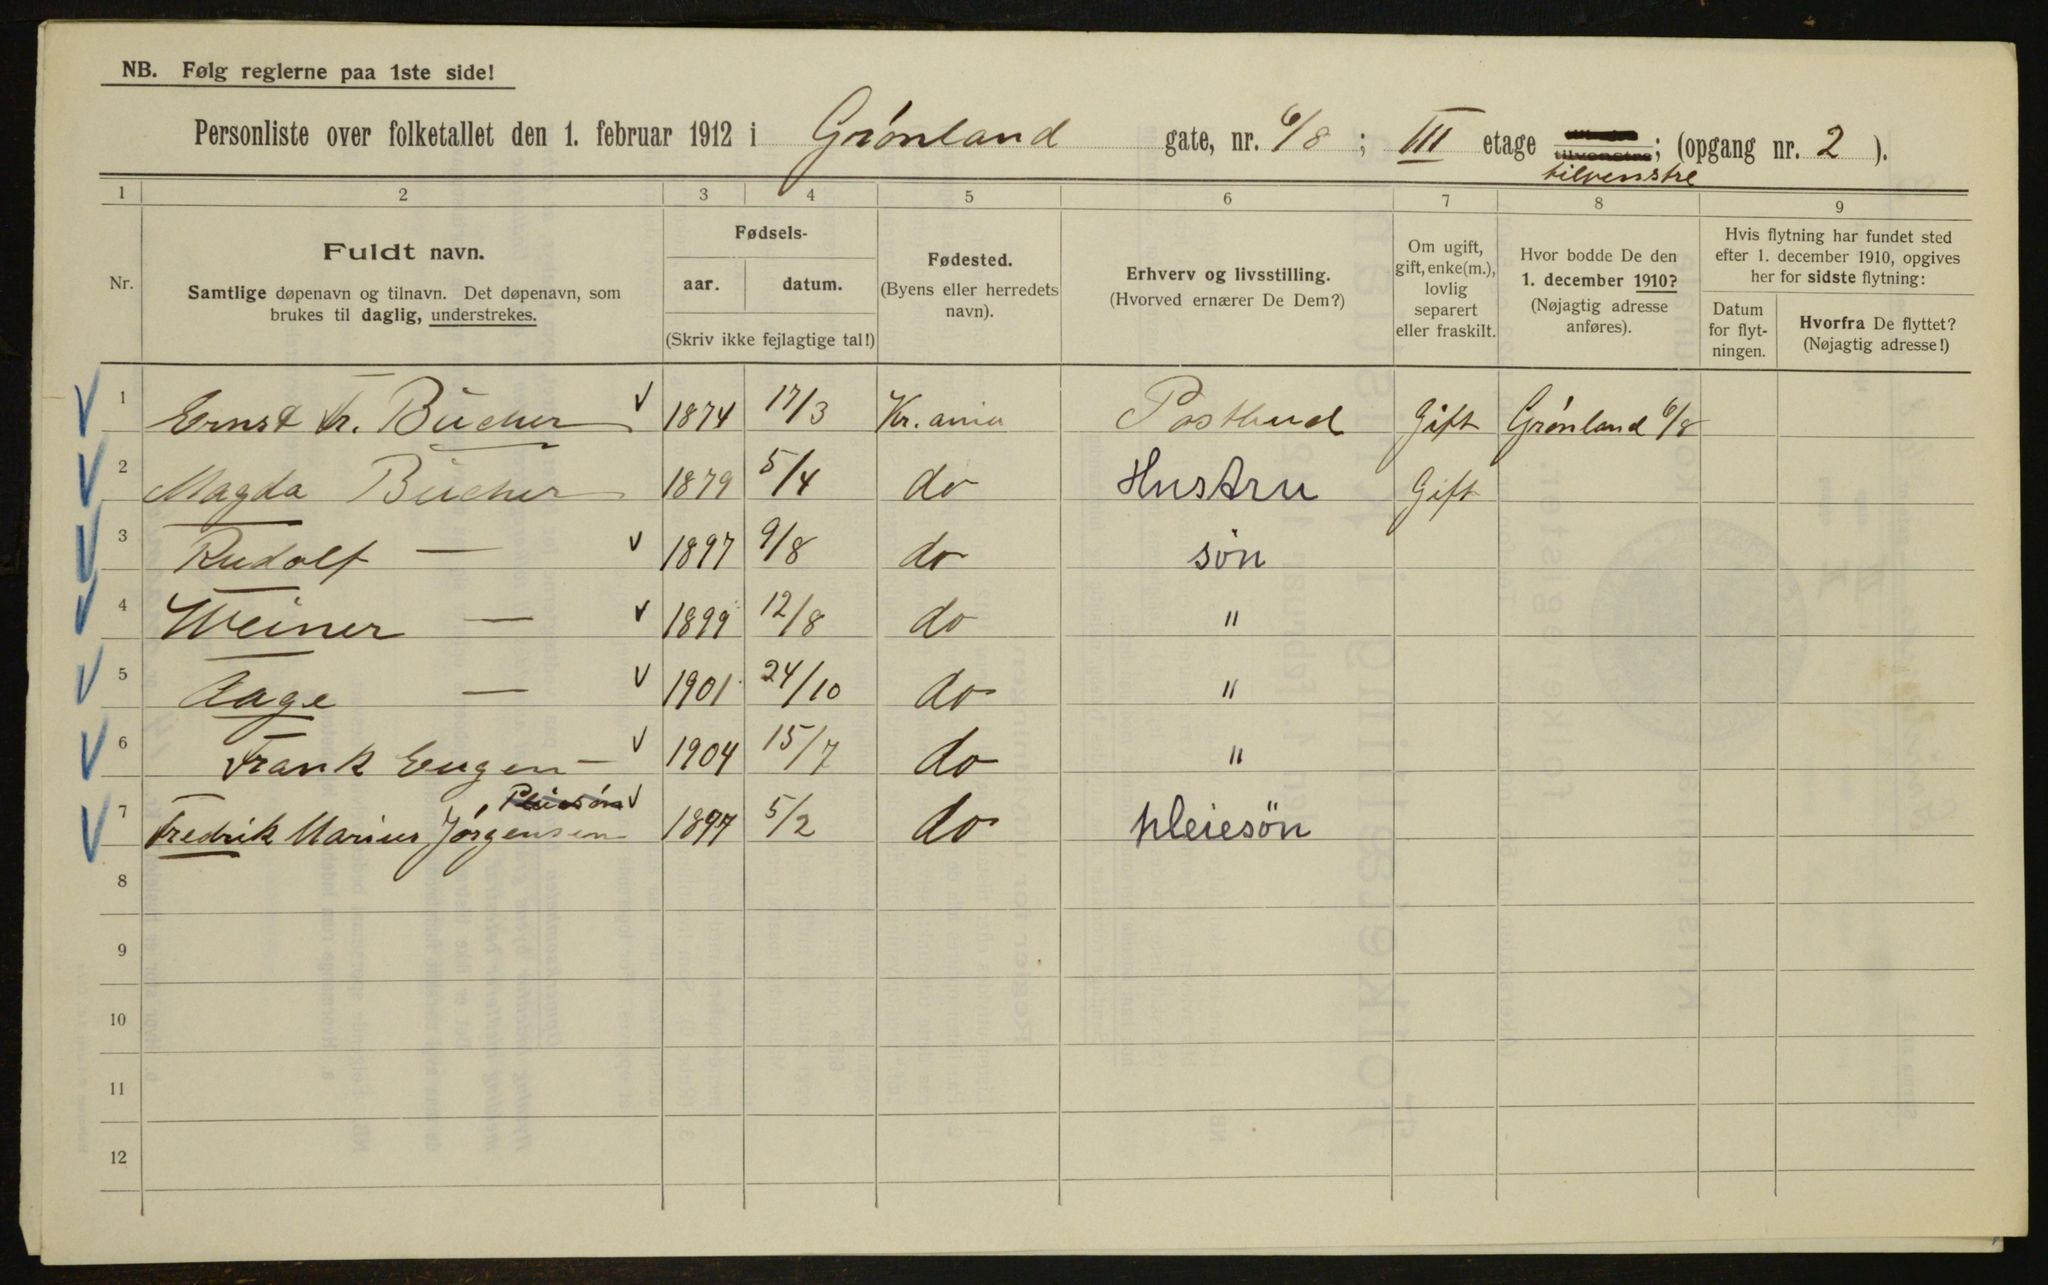 NB. Følg reglerne paa 1ste side!
Personliste over folketallet den 1. februar 1912 i Grønland gate, nr. 6/8 ; III etage tilvenstre; (opgang nr. 2 ).
tilvenstre
1 2 3 4 5 6 7 8 9
Nr.
Fuldt navn.
Samtlige døpenavn og tilnavn. Det døpenavn, som
brukes til daglig, understrekes.
Fødsels-
aar. datum.
(Skriv ikke fejlagtige tal!)
Fødested.
(Byens eller herredets
navn).
Erhverv og livsstilling.
(Hvorved ernærer De Dem?)
Om ugift,
gift, enke(m.),
lovlig
separert
eller fraskilt.
Hvor bodde De den
1. december 1910?
(Nøjagtig adresse
anføres).
Hvis flytning har fundet sted
efter 1. december 1910, opgives
her for sidste flytning:
Datum
for flyt-
ningen.
Hvorfra De flyttet?
(Nøjagtig adresse!)
1 Ernst Fr. Bücher 1874 17/3 Kr.ania Postbud Gift Grønland 6/8
2 Magda Bücher 1879 5/4 do Hustru Gift
3 Rudolf — 1897 9/8 do søn
4 Weiner — 1899 12/8 do "
5 Aage — 1901 24/10 do "
6 Frank Eugen — 1904 15/7 do "
Pleiesøn
7 Fredrik Marius Jörgensen 1897 5/2 do pleiesön
8
9
10
11
12